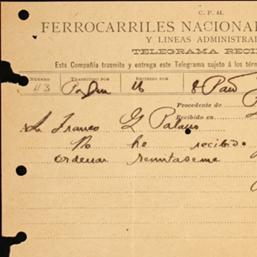 C. P. 41.
FERROCARRILES NACIONAL
Y LINEAS ADMINISTRA
TELEGRAMA RECI
Esta Compañía trasmite y entrega este Telegrama sujeto á los térm
NUMERO TRASMITIDO POR RECIBIDO POR
43
Procedente de
Recibido en
Franco G Palacio
No he recibido
ordenar remitaseme